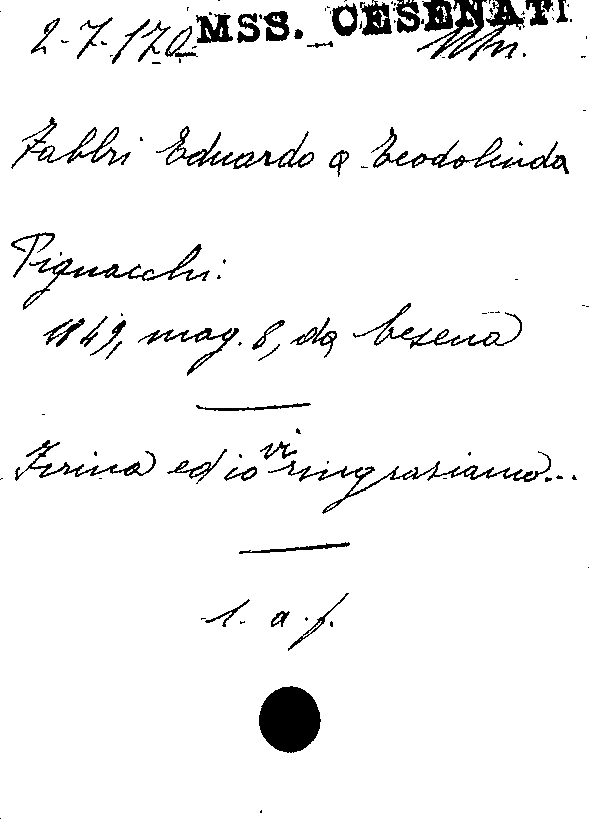 MSS. CESENATI
2-7-170
Fabbri Eduardo a Teodolinda
Pignacchi:
1849, mag. 8, da Cesena
vi
Irina ed io ringraziamo...
l. a. f.